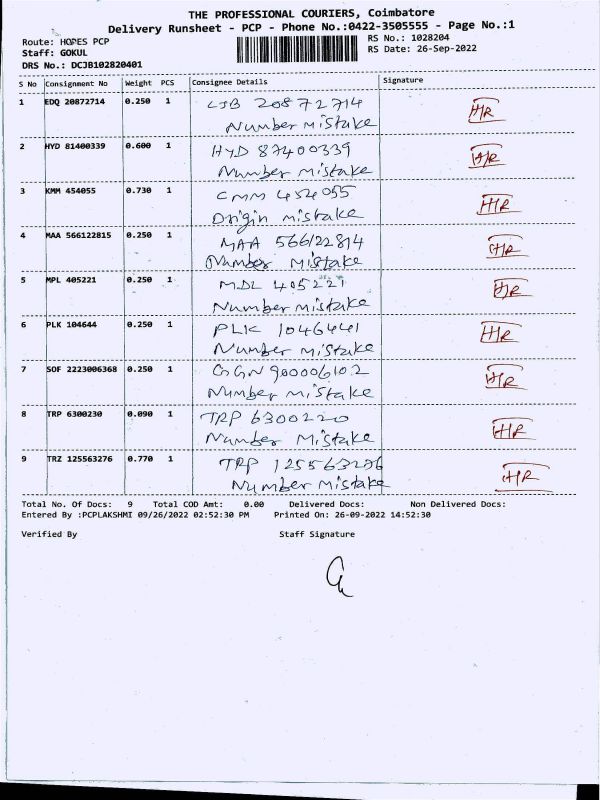 THE PROFESSIONAL COURIERS, Coimbatore
Delivery Runsheet - PCP - Phone No.:0422-3505555 - Page No.:1
Route: HOPES PCP
RS No.: 1028204
Staff: GOKUL
RS Date: 26-Sep-2022
DRS No.: DCJB102820401
S No Consignment No Weight PCS Consignee Details Signature
1 EDQ 20872714 0.250 1 CJB 20872714 HR
Number Mistake
2 HYD 81400339 0.600 1 HYD 87400339 HR
Number Mistake
3 KMM 454055 0.730 1 CMM 454055 HR
Origin mistake
4 MAA 566122815 0.250 1 MAA 566122814 HR
Number Mistake
5 MPL 405221 0.250 1 MDL 405221 HR
Number mistake
6 PLK 104644 0.250 1 PLK 1046441 HR
Number Mistake
7 SOF 2223006368 0.250 1 GGN 900006102 HR
Number mistake
8 TRP 6300230 0.090 1 TRP 6300220 HR
Number Mistake
9 TRZ 125563276 0.770 1 TRP 125563276 HR
Number Mistake
Total No. Of Docs: 9 Total COD Amt: 0.00 Delivered Docs: Non Delivered Docs:
Entered By :PCPLAKSHMI 09/26/2022 02:52:30 PM Printed On: 26-09-2022 14:52:30
Verified By Staff Signature